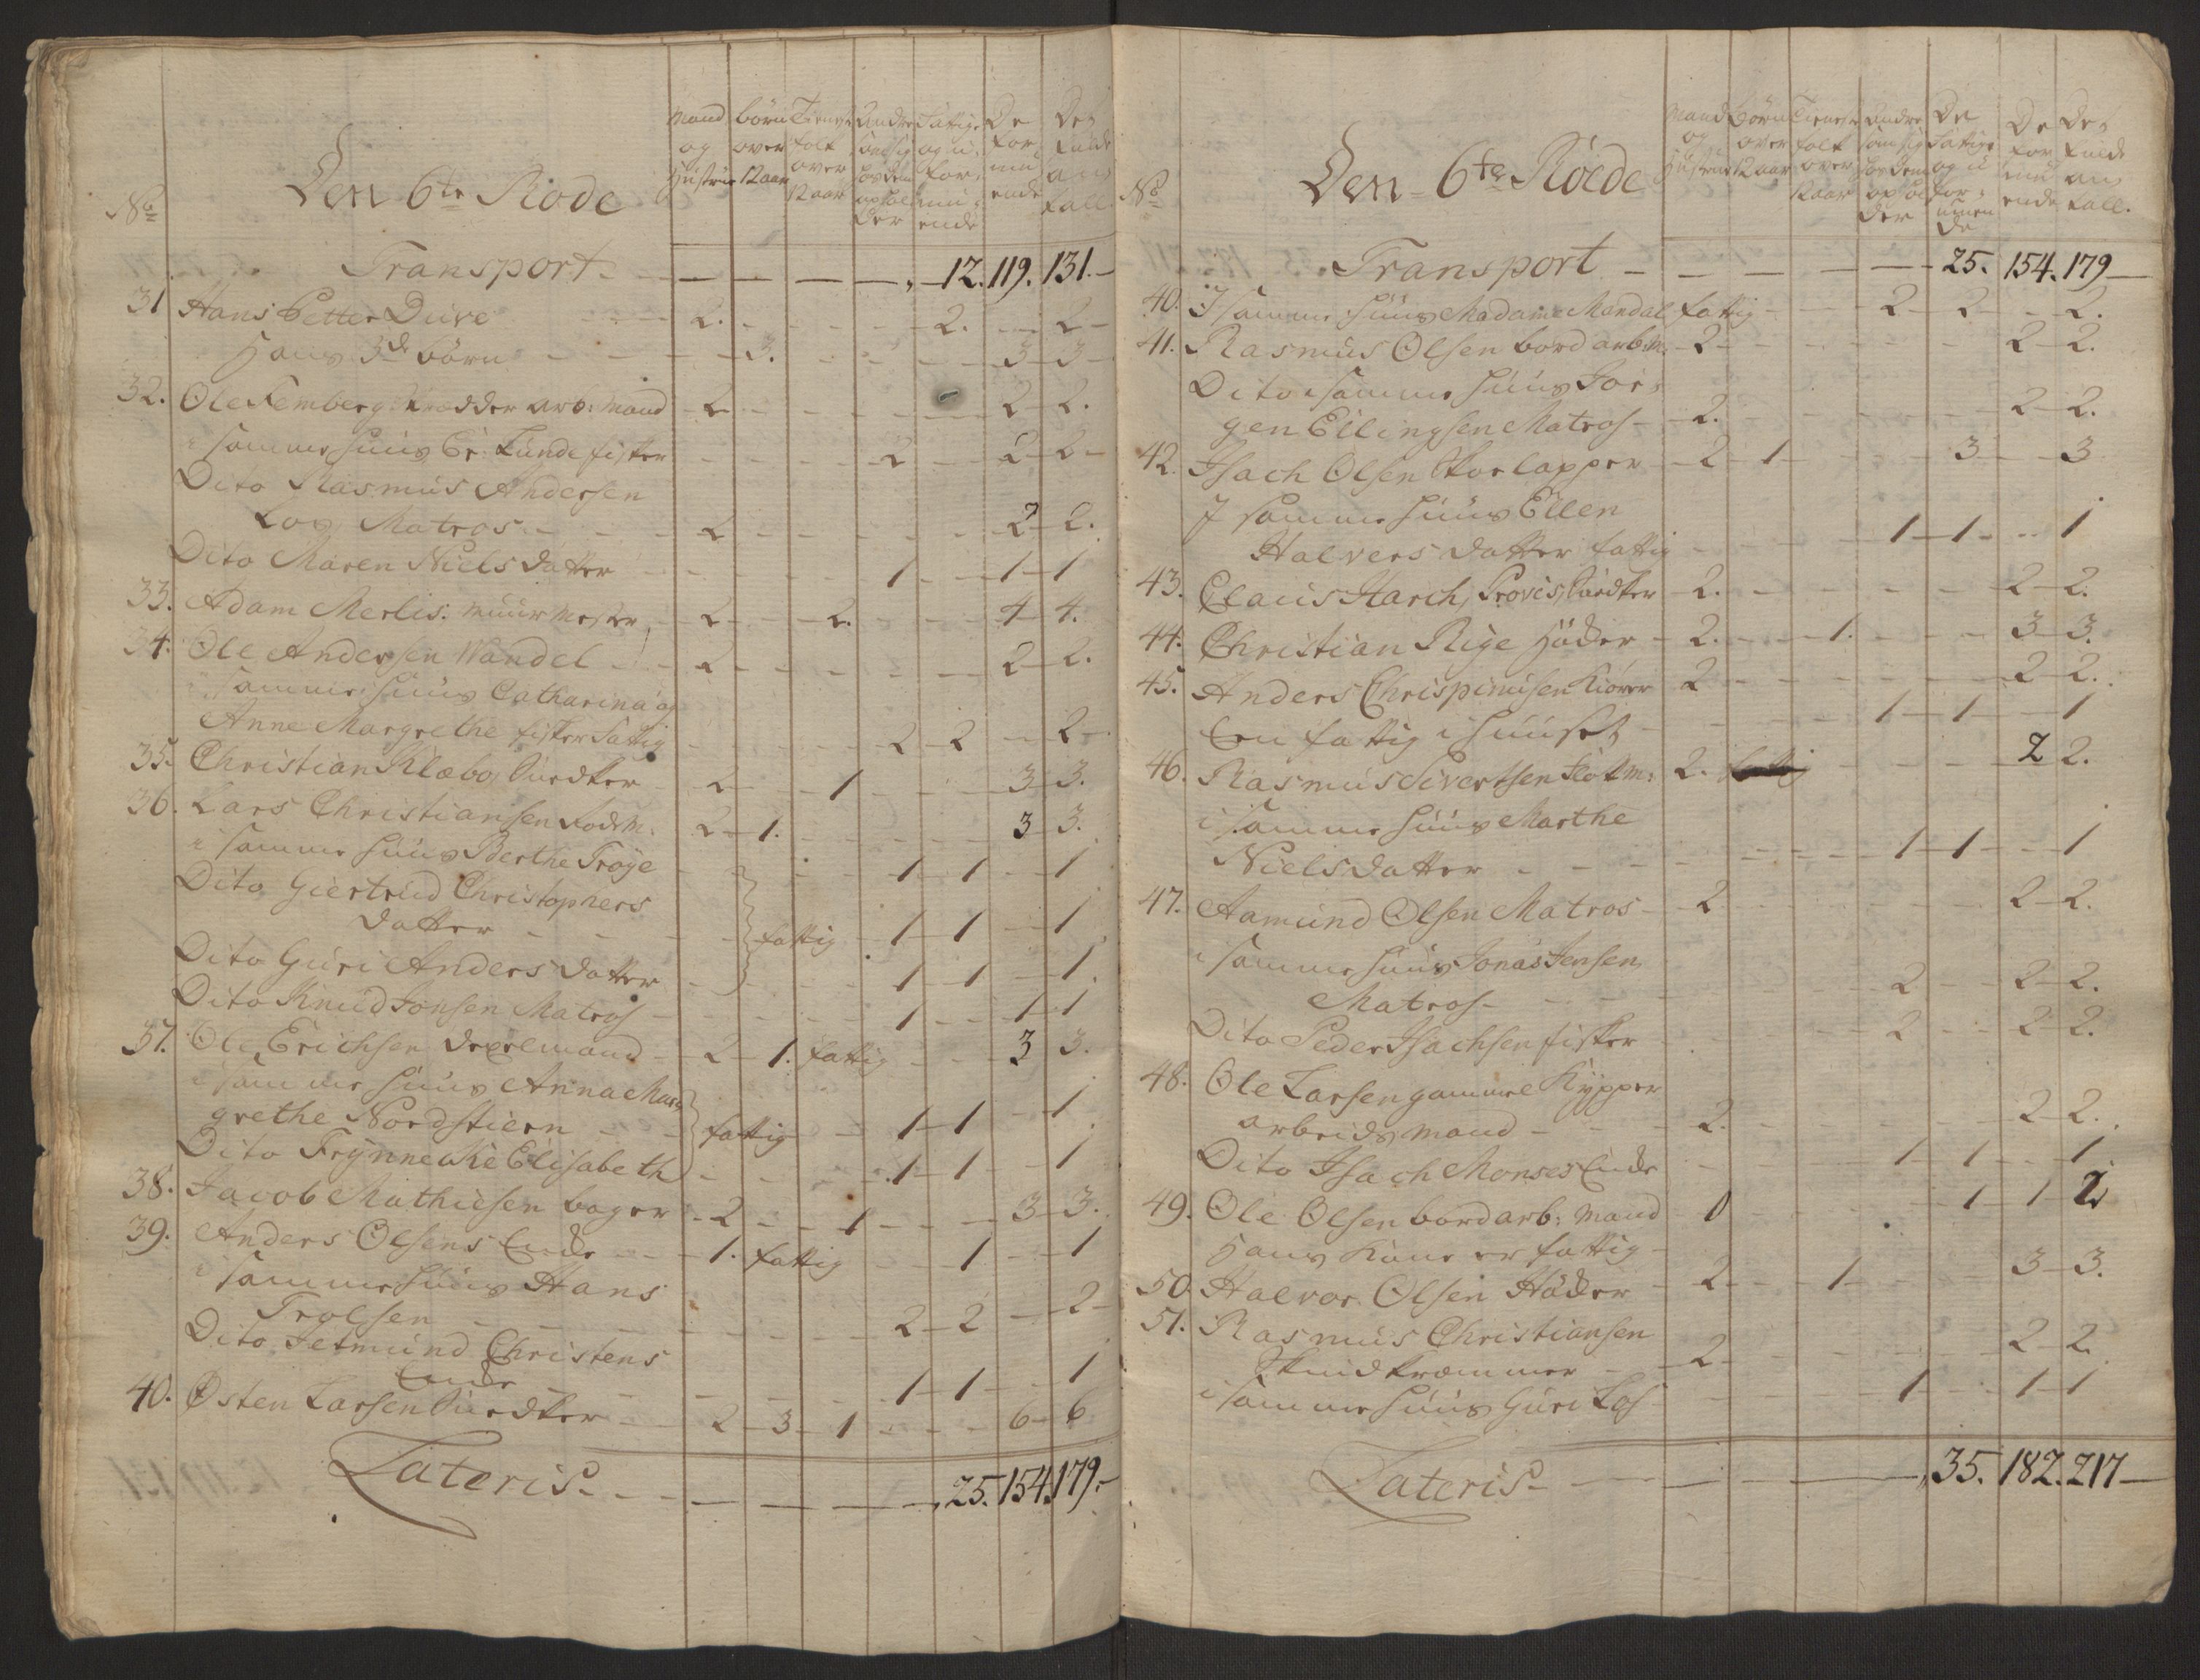 No Den 6te Rode
Mand og Hustrue
børn over 12 aar
Tieneste folk over 12 aar
Andre som sig hos dem opholder
fattige og u formuende
De formuende
Det fulde antall
Transport - - - - - 12. 119. 131. -
31 Hans Petter Dure - - 2. - - - - 2. - 2 -
Hans 3de børn - - 3. - - - 3 - 3 -
32. Ole Femberg arb: Mand - 2 - - - - 2 - 2.
i samme huus Lunde fisker - - - 2 - 2 - 2 -
Dito Rasmus Andersen
Los Matros - - 2 - - - - 2 - 2.
Dito Maren Niels datter - - - - 1 - - 1 - 1
33. Adam Merlis. muur Mester - 2 - - 2. - - - 4 - 4.
34. Ole Andersen Wandel - - 2 - - - - 2 - 2.
i samme huus Catharina og
Anne Margrethe fisker fattig - - - - 2 - 2 - - 2 -
35. Christian Klæboe - 2 - - 1 - - - 3 - 3.
36. Lars Christiansen 2 - 1. - - - - 3 3.
i samme huus Berthe Troye - - - - 1 - 1 - - 1
Dito Giertrud Christophers
datter - - - fattig - 1 - 1 - - 1
Dito Guri Anders datter - - - 1 - 1 - - 1.
Dito Knud Jonsen Matros - - - - 1 - - 1 - 1
37. Ole Erichsen - 2 - 1. fattig - - 3 3.
i samme huus Anna Mar
grethe Nordstiern - - fattig - - 1 - 1 - - 1
Dito Frynneche Elisabeth - - - 1 - 1 - - 1
38. Jacob Mathiesen bager - 2 - - 1 - - - 3 - 3.
39. Anders Olsens Enke - - 1. fattig - - 1 - - 1
i samme huus Hans
Trolsen - - - - - 2 - 2 - - 2 -
Dito Jetmund Christens
Enke - - - - - 1 - 1 - - 1
40. Østen Larsen - 2 - 3 - 1 - - - 6 - 6
Lateris - - - - - 25. 154. 179. -
No Den 6te Roede
Mand og Hustrue
Børn over 12 aar
Tieneste folk over 12 aar
Andre som sig hos dem opholder
De fattige og u formuende
De formuende
Det fulde antall.
Transport - - - - - 25. 154. 179 -
40. I samme huus Madame Mandal fattig - - - 2 - 2 - - 2.
41. Rasmus Olsen bord arb: M. - 2 - - - - - 2 - 2.
Dito i samme huus Jør-
gen Ellingsen Matros - - 2. - - - - 2 - 2.
42. Isach Olsen Skoelapper - 2 - 1 - - - 3 - - 3
I samme huus Ellen
Halvers datter fattig - - - 1 - 1 - - 1
43. Claus Harch, - 2. - - - - 2 - 2.
44. Christian Rige Høder - 2. - - 1. - - - 3 - 3.
45. Anders Chrispinusen 2 - - - - - 2 - 2.
Een fattig i huuset - - - - 1 - 1 - - 1
46. Rasmus Sivertsen 2. - - - - 2 2.
i samme huus Marthe
Nielsdatter - - - - - - 1 - 1 - - 1
47. Aamund Olsen Matros - 2 - - - - - 2 - 2.
i samme huus Jonas Jensen
Matros - - - - - 2 - - 2 - 2.
Dito Peder Isachsen fisker - - - 2 - - 2 - 2.
48. Ole Larsen gammel Kypper
arbeids mand - - - 2. - - - - 2 - 2.
Dito Isach Monses Enke - - - 1 - 1 - - 1
49. Ole Olsen bord arb: Mand - 1 - - - - 1 - 1 - 2
Hans Kone er fattig -
50. Halvor Olsen Høker - 2 - - 1 - - - 3 - 3.
51. Rasmus Christiansen
- 2 - - - - - 2 - 2.
i samme huus Guri Los - - - - 1 - - 1 - 1
Lateris - - - - - 35. 182. 217 -